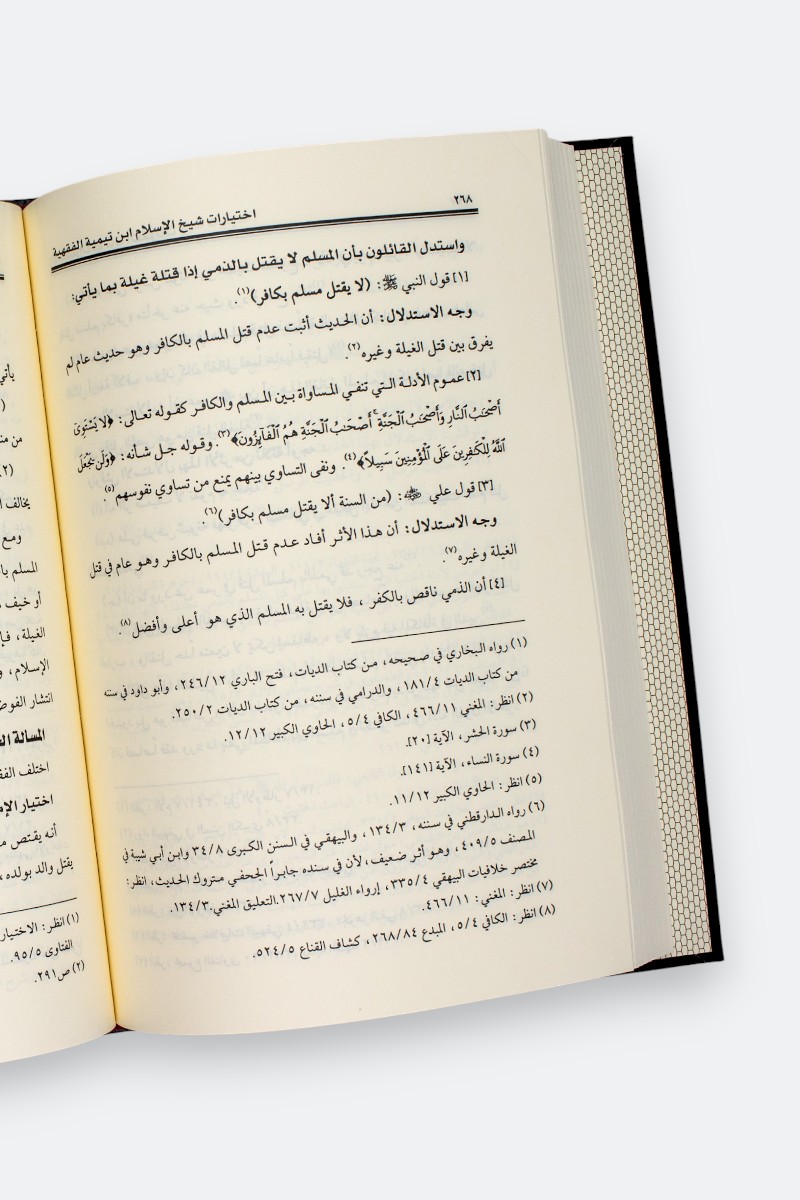 ٢٦٨
اختيارات شيخ الإسلام ابن تيمية الفقهية
واستدل القائلون بأن المسلم لا يقتل بالذمي إذا قتلة غيلة بما يأتي:
[١] قول النبي ﷺ: (لا يقتل مسلم بكافر)(١).
وجه الاستدلال: أن الحديث أثبت عدم قتل المسلم بالكافر وهو حديث عام لم
يفرق بين قتل الغيلة وغيره(٢).
[٢] عموم الأدلة التي تنفي المساواة بين المسلم والكافر كقوله تعالى: ﴿لَا يَسْتَوِىٓ
أَصْحَٰبُ ٱلنَّارِ وَأَصْحَٰبُ ٱلْجَنَّةِ ۚ أَصْحَٰبُ ٱلْجَنَّةِ هُمُ ٱلْفَآئِزُونَ﴾(٣). وقوله جل شأنه: ﴿وَلَن يَجْعَلَ
ٱللَّهُ لِلْكَٰفِرِينَ عَلَى ٱلْمُؤْمِنِينَ سَبِيلًا﴾(٤). ونفى التساوي بينهم يمنع من تساوي نفوسهم(٥).
[٣] قول علي: (من السنة ألا يقتل مسلم بكافر)(٦).
وجه الاستدلال: أن هذا الأثر أفاد عدم قتل المسلم بالكافر وهو عام في قتل
الغيلة وغيره(٧).
[٤] أن الذمي ناقص بالكفر، فلا يقتل به المسلم الذي هو أعلى وأفضل(٨).
(١) رواه البخاري في صحيحه، من كتاب الديات، فتح الباري ٢٤٦/١٢، وأبو داود في سننه
من كتاب الديات ١٨١/٤، والدرامي في سننه، من كتاب الديات ٢٥٠/٢.
(٢) انظر: المغني ٤٦٦/١١، الكافي ٥/٤، الحاوي الكبير ١٢/١٢.
(٣) سورة الحشر، الآية [٢٠].
(٤) سورة النساء، الآية [١٤١].
(٥) انظر: الحاوي الكبير ١١/١٢.
(٦) رواه الدارقطني في سننه، ١٣٤/٣، والبيهقي في السنن الكبرى ٣٤/٨ وابن أبي شيبة في
المصنف ٤٠٩/٥، وهو أثر ضعيف، لأن في سنده جابراً الجحفي متروك الحديث، انظر:
مختصر خلافيات البيهقي ٣٣٥/٤، إرواء الغليل ٢٦٧/٧.التعليق المغني.١٣٤/٣.
(٧) انظر: المغني: ٤٦٦/١١.
(٨) انظر: الكافي ٥/٤، المبدع ٢٦٨/٨٤، كشاف القناع ٥٢٤/٥.
يأتي
(
من
(٢)
يخالف
ومع
المسلم
أو خيف
الغيلة، فإ
الإسلام، و
انتشار الفوض
المسألة
اختلف الفق
اختيار الإم
أنه يقتص
يقتل والد بولده،
(١) انظر: الاختيار
الفتاوى ٩٥/٥.
(٢) ص٢٩١.